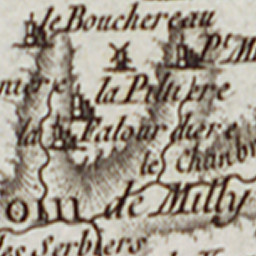 le Bouchereau
Pt. M
niere
la Piluere
la Falourdiere
le Chanb
oin de Milly
les Serbiers